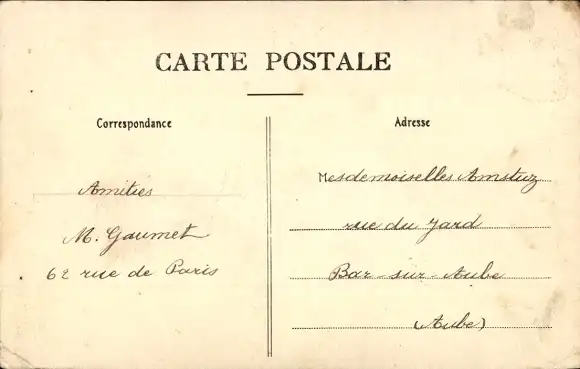 CARTE POSTALE
Correspondance
Amitiés
M. Gaumet
62 rue de Paris
Adresse
Mesdemoiselles Amstuz
rue du Jard
Bar-sur-Aube
(Aube)